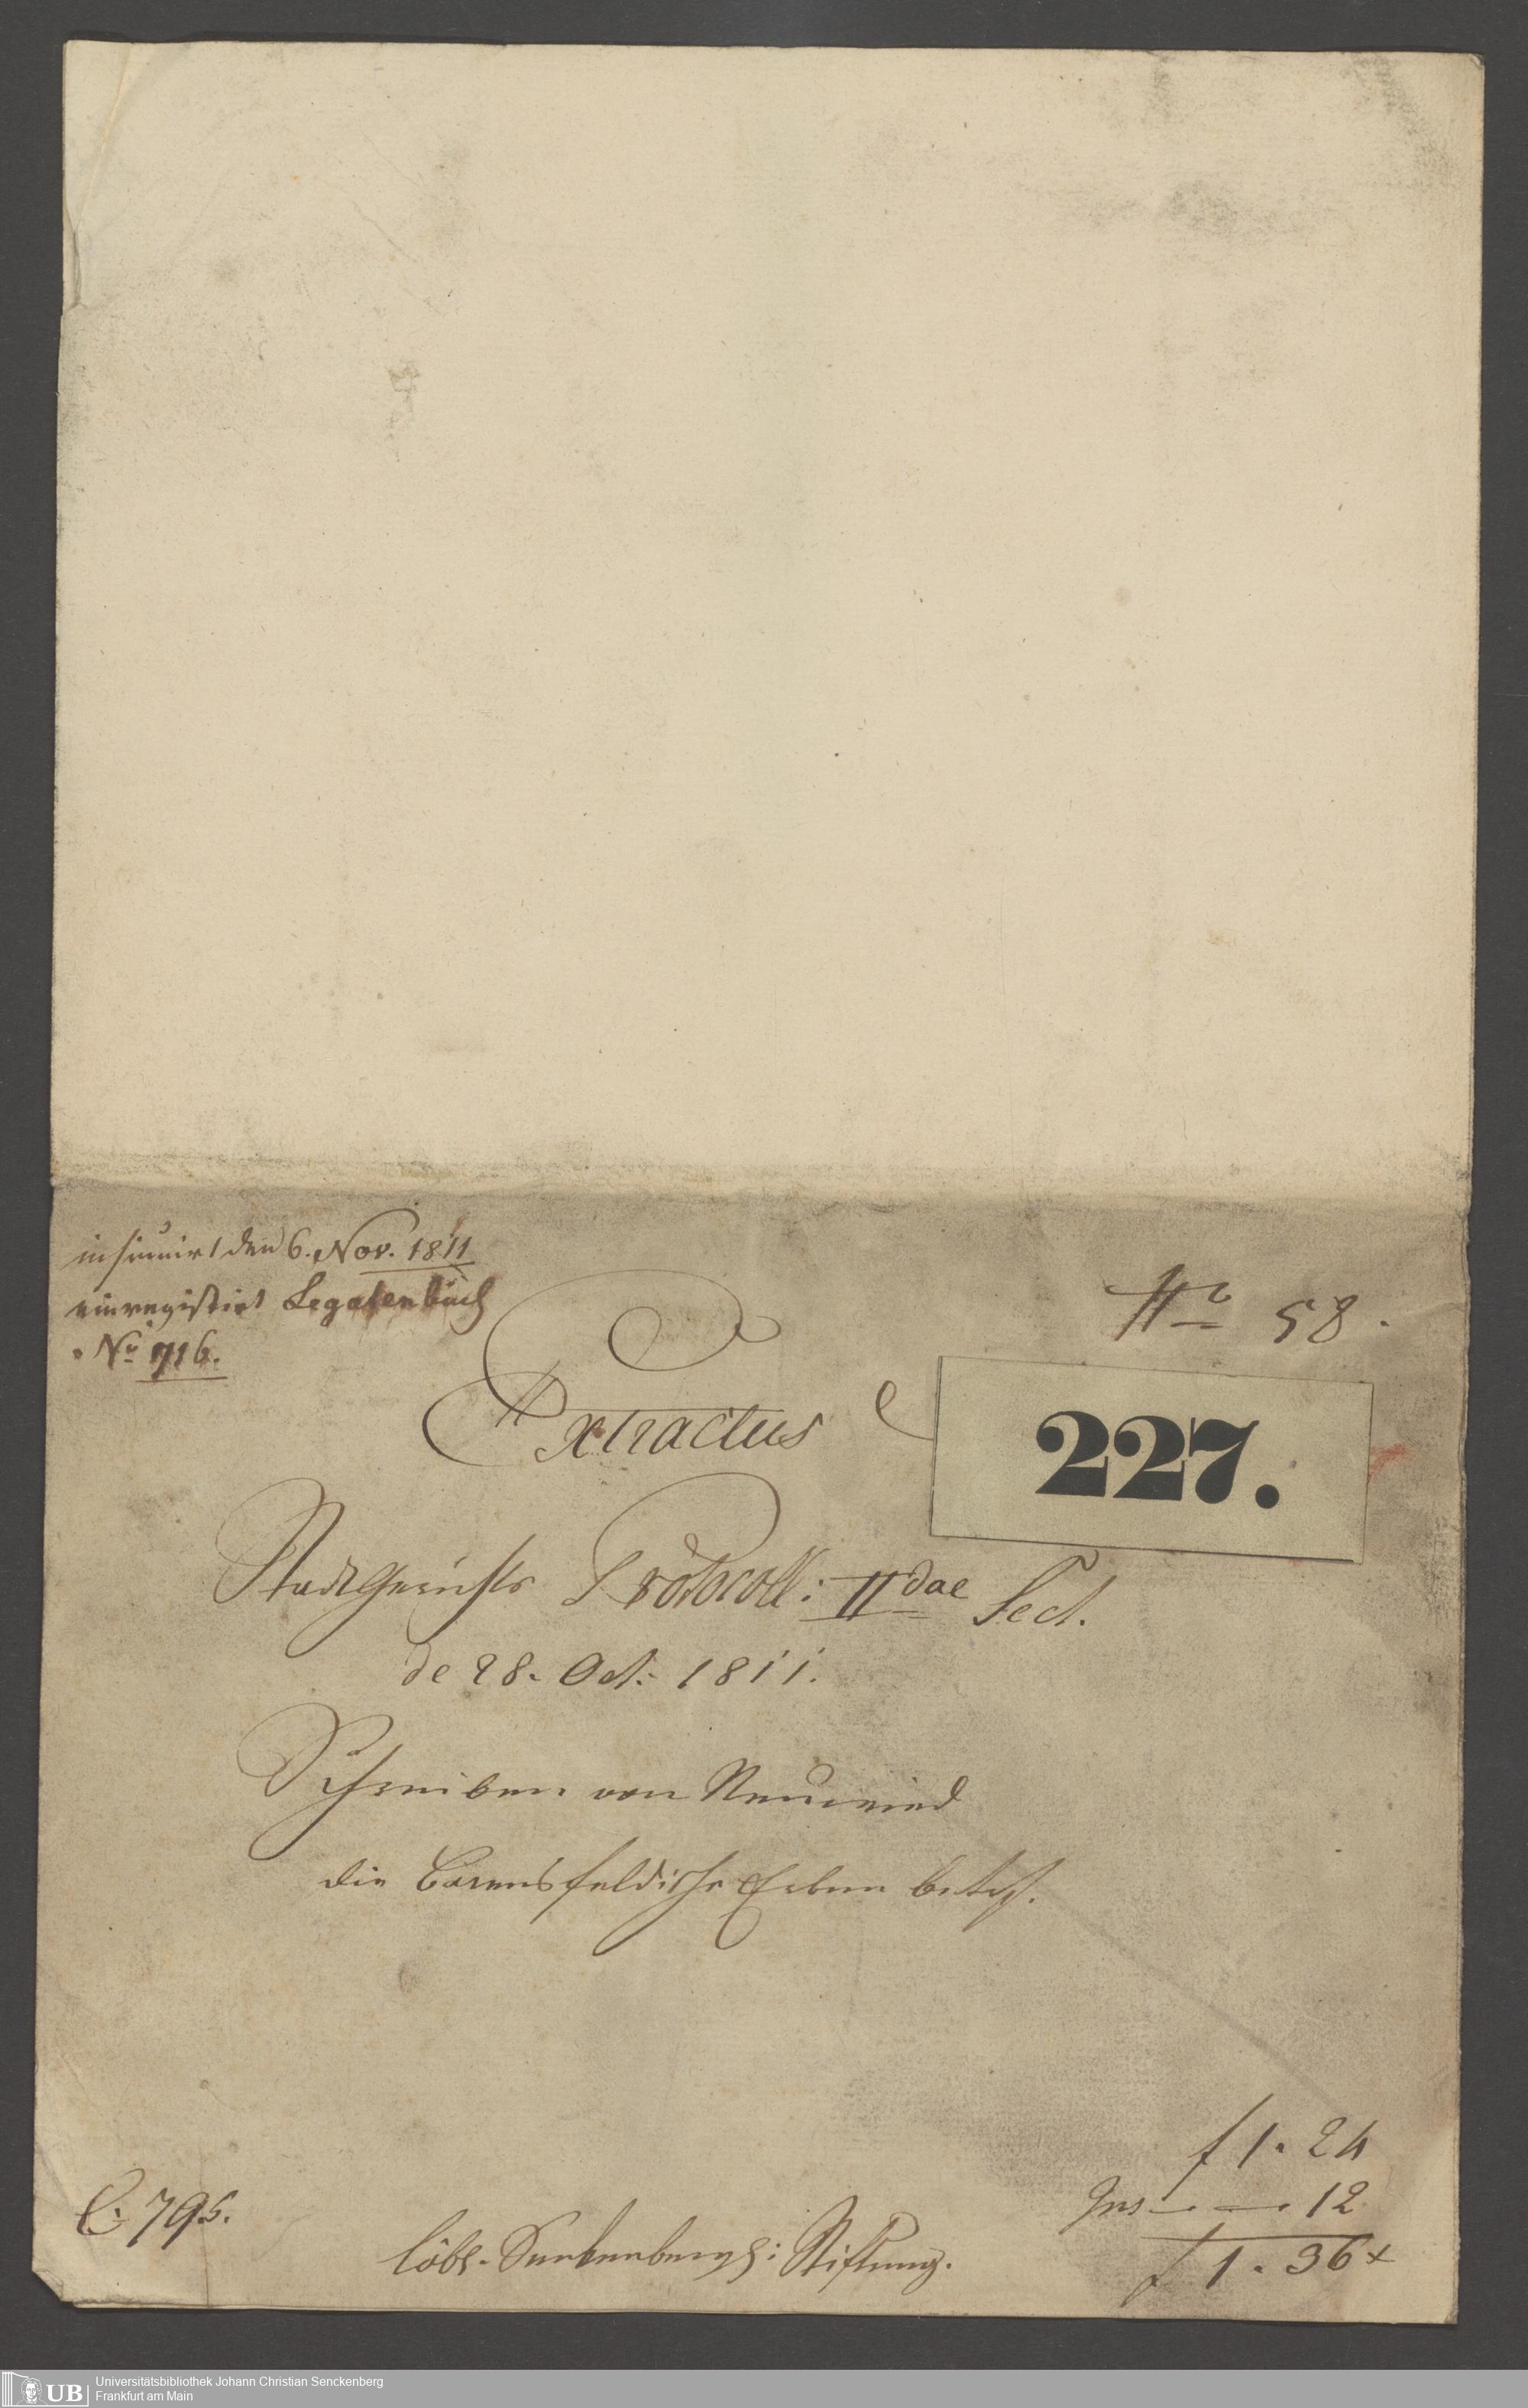 insinuirt den 6. Nov. 1811
einregistrirt Legatenbuch
Nº 716.
Nº 58.
Extractus
227.
Stadtgerichts Protocoll: IIdae Sect.
de 28. Oct: 1811.
Schreiben von Neuwied
die Barensfeldische Erben betrf.
f 1. 24
Ins — — . 12
f 1. 36 x
C. 795.
löbl. Senkenbergs: Stiftung.
UB
Universitätsbibliothek Johann Christian Senckenberg
Frankfurt am Main